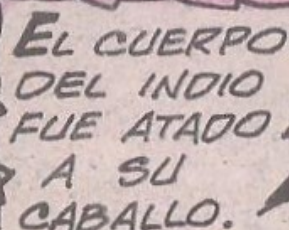 EL CUERPO
DEL INDIO
FUE ATADO
A SU
CABALLO.